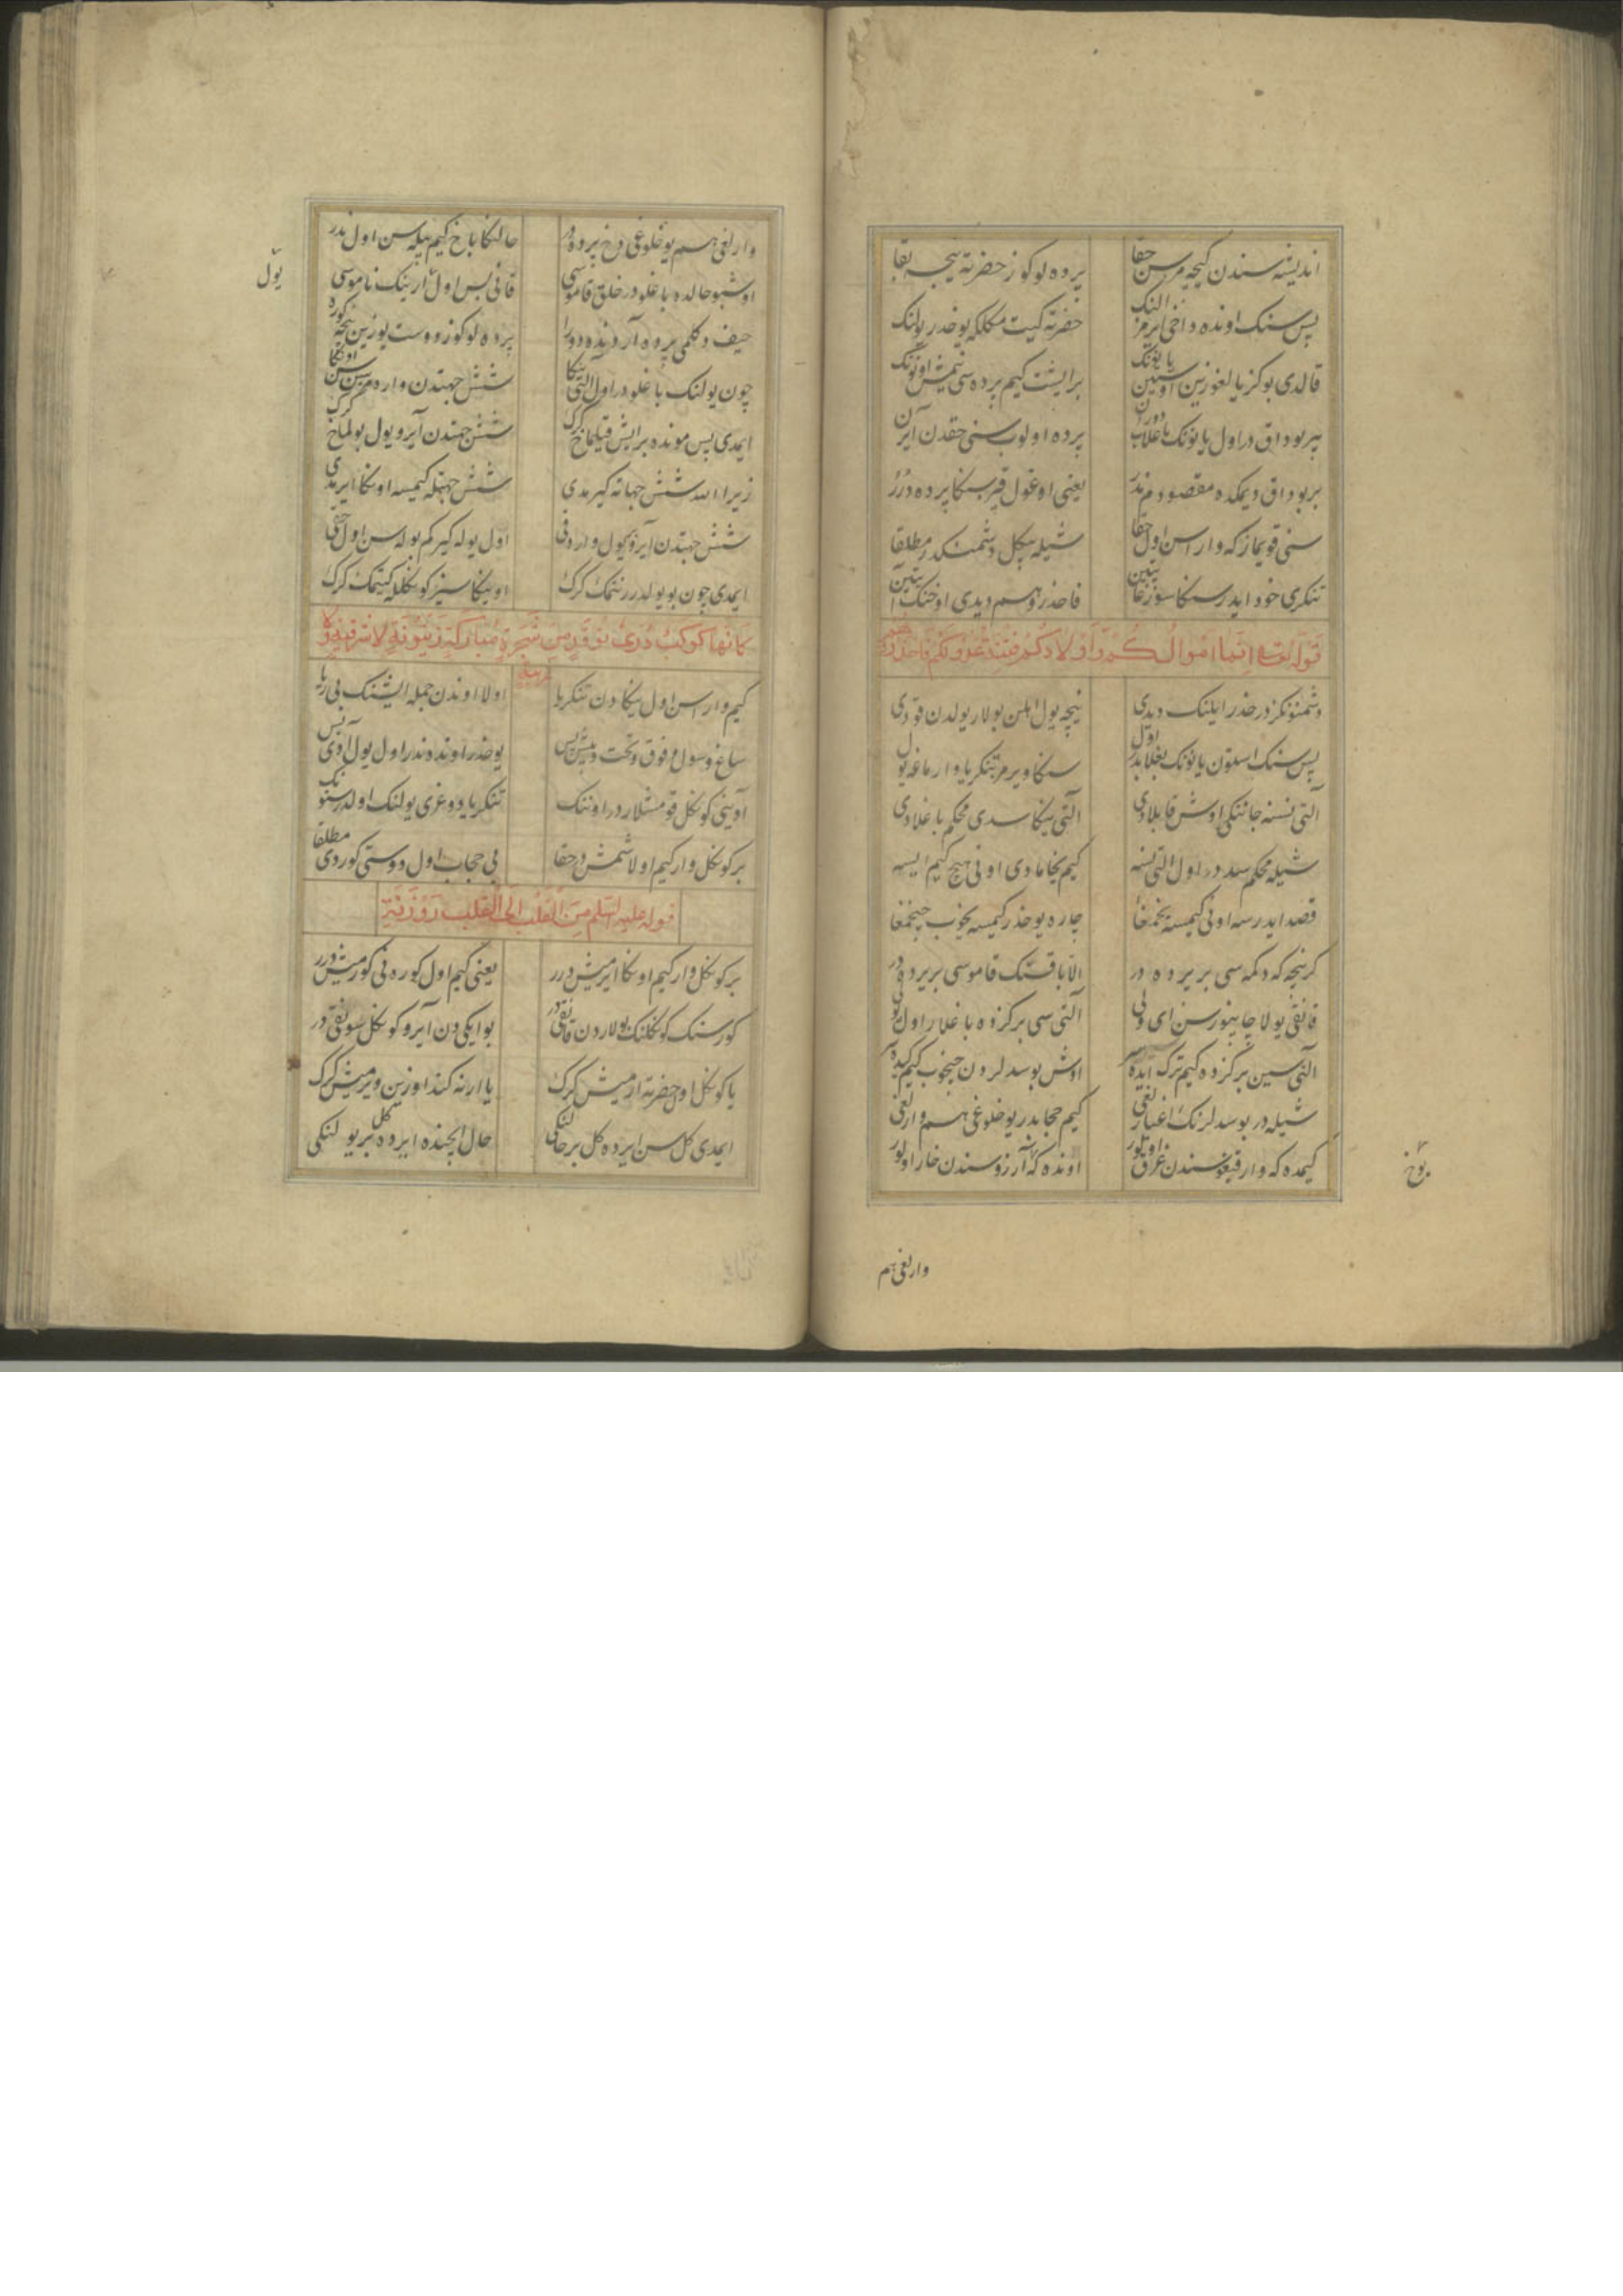 اندیشه سندن کیچه مرسن حقا پرده لو کوز حضرته نیجه بقا
پس سنک اونده داخی ایرمز النک حضرته کیت مکلکه یوخدر یولنک
قالدی بو کز یا لغوزین یا یونک برایشت کیم پرده سی نیمش اونونک
بر بوداق در اول یا یونک پرده اولوب سنی حقدن آیرن
بر بوداق دیمکده مقصودم ندر یعنی اوغول قیز سنکا پرده درر
سنی قویمازکه وارا سن اول حقا شیله بیکل دشمنکدر مطلقا
تنکری خود ایدر سنکا سوز فاحذروهم دیدی اوخنک
قوله تعالی انما اموالکم و اولادکم فتنة عدو لکم فاحذروهم
دشمنونکزدر حذر ایلنک دیدی نیچه یول بولار یولدن قودی
پس سنک یا یونک بغلابدر اول سنکا ویرمز تنکریا وارماغه یول
آلتی نسنه جانکی اوش قابلادی آلتی ینکا سدی محکم باغلادی
شیله محکم سددر اول آلتی نسنه کیم یخامادی اونی هیچ کیم ایسه
قصد ایدرسه اونی کیمسه یخمغا چاره یوخدر کیمسه یخوب چیخمغا
کرنیجه که دکمه سی بر پرده در الا باقسنک قاموسی بر پرده در
قانقی یولا چاپینورسن ای ولی آلتی سی برکزده باغلار اول یولی
آلتی سین برکزده کیم ترک ایده اوش بو سدلردن چیخوب کیم کیده
شیله در بو سدلرنک اغیارلغی کیم حجابدر یوخلوغی هم وارلغی
کیمده که وار قیغو سندن غرق اولور اونده که آرزو سندن خار اولور
یوخ
وارلغی هم
وارلغی هم یوخلوغی دخ پرده در حالنکا باخ کیم بیله سن اول ندر
اوشبو حالده باغلودر خلق قاموسی قانی بس اول ارینک ناموسی
حیف دکلمی پرده آردنده دورا پرده لو کوز دوست یوزین نیجه کوره
چون یولنک باغلودر اول آلتی ینکا شش جهتدن وارمزسن سن اونکا
ایمدی بس مونده برایش قیلماخ کرک شش جهتدن آیرو یول بولماخ کرک
زیرا الله شش جهاته کیرمدی شش جهتله کیمسه اونکا ایرمدی
شش جهتدن آیرو یول وار دقی اول یوله کیر کم بوله سن اول حقی
ایمدی چون بو یولدرر نتمک کرک او ینکاسیز کونکلله کیتمک کرک
کانها کوکب دری یوقد من شجرة مبارکة زیتونة لا شرقیة ولا غربیة
کیم وارا سن اول ینکادن تنکریا اولا اوندن جمله ایشنک بی ریا
ساغ و سول و فوق و تحت و پیش و پس یوخدر اونده ندر اول یول
آدینی کونکل قومشلاردر اوننک تنکریا دوغری یولنک اولدر سنونک
بر کونکل وار کیم اولاشمشدر حقا بی حجاب اول دوستی کوردی مطلقا
قوله علیه السلم من القلب الی القلب روزنة
بر کونکل وار کیم اونکا ایرمیش درر یعنی کیم اول کوره نی کورمیش درر
کور سنک کونکلنک بولاردن قانقی در بو ایکیدن آیرو کونکل سو نقی در
یا کونکل اول حضرته ارمیش کرک یا ارنه کندوزین ویرمیش کرک
ایمدی کل سن ایرده کل بر حالنکی حال ایچنده ایرده کل بر یولنکی
یول